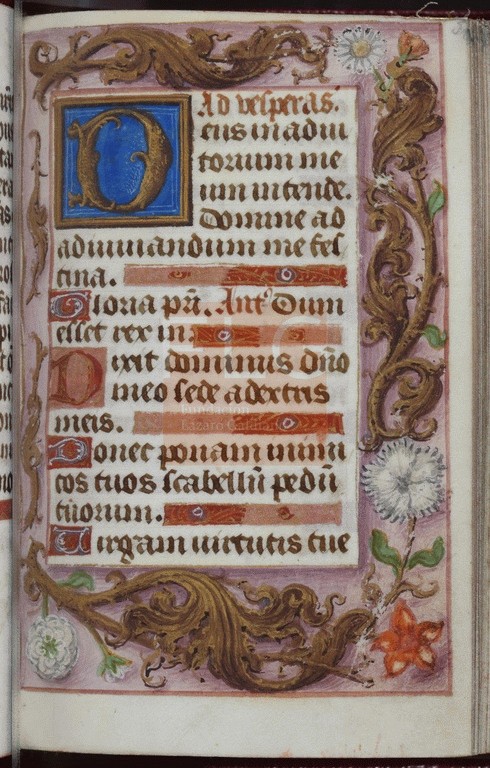 Ad vesperas.
Deus in adiu
torium me
um intende.
Domine ad
adiuuandum me fes
tina.
Gloria pr̄i. Ant᷒ Dum
esset rex in.
Dixit dominus dño
meo sede a dextris
meis.
Donec ponam inimi
cos tuos scabellū pedū
tuorum.
Uirgam uirtutis tue
Fundación
Lázaro Galdiano